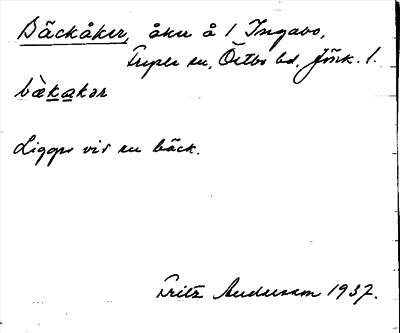 Bäckåker, åker å 1 Ingabo,
Fryele sn, Östbo hd, Jönk. l.
bækakər
Ligger vid en bäck.
Fritz Andersson 1937.